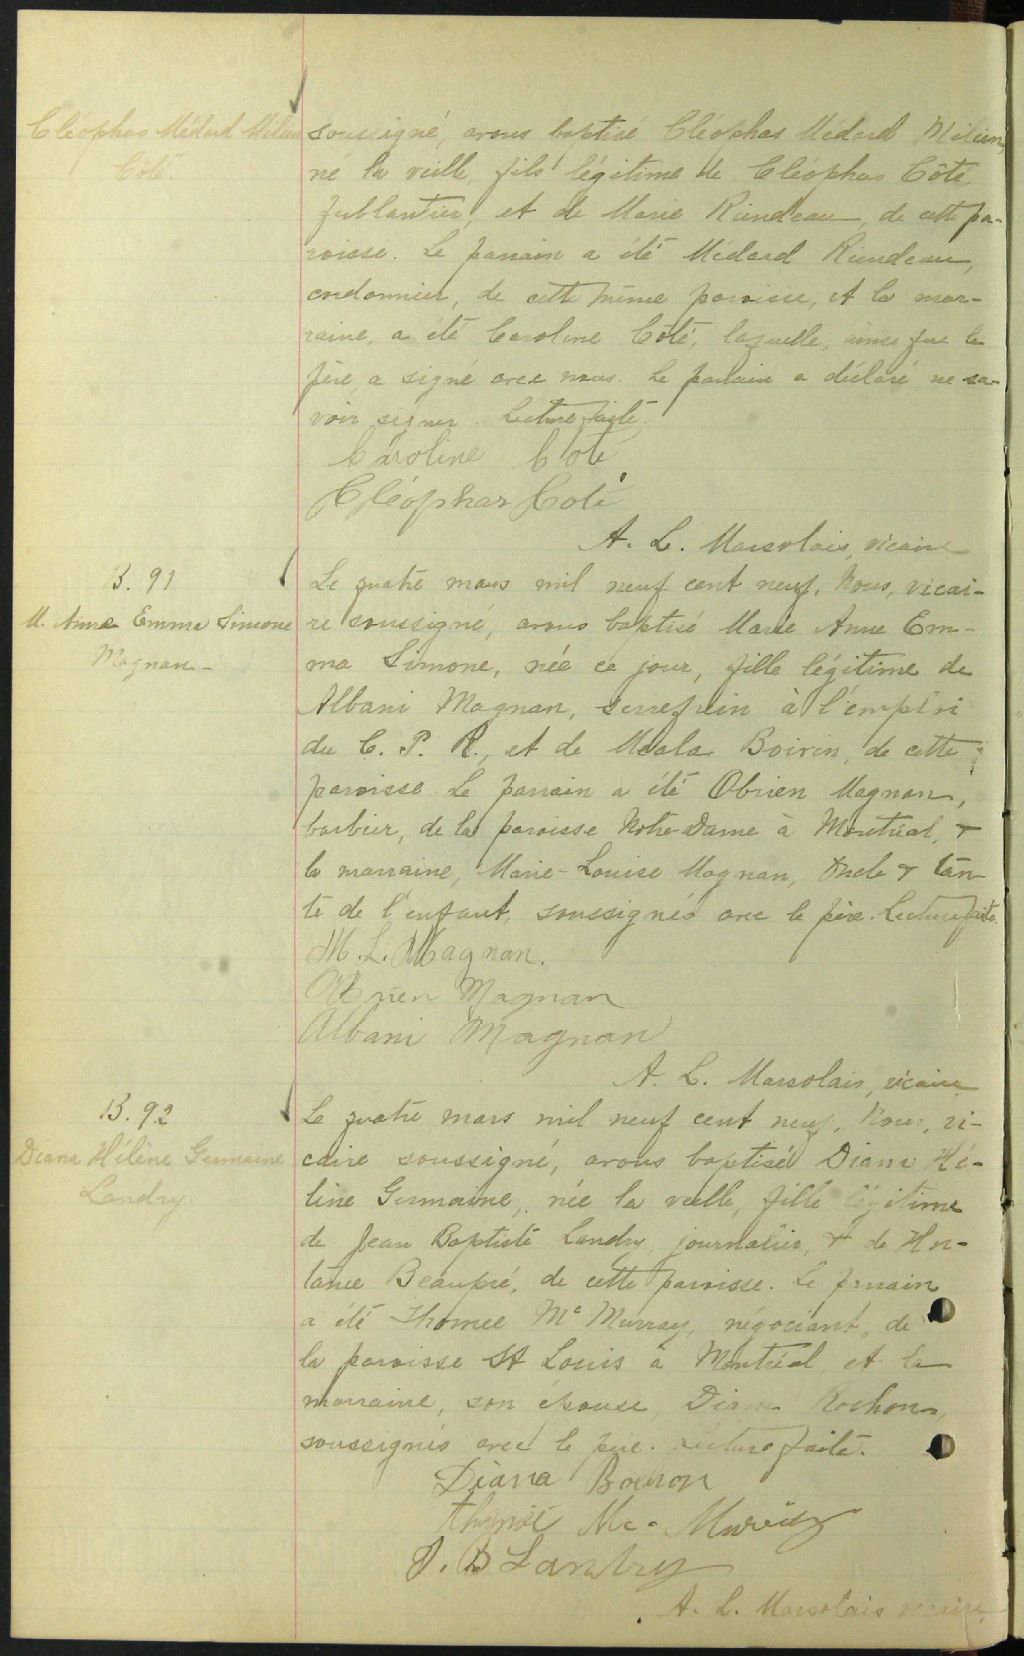 Cléophas Médard Milien
Côté.
soussigné, avons baptisé Cléophas Médard Milien,
né la veille, fils légitime de Cléophas Côté,
ferblantier, et de Marie Riendeau, de cette pa-
roisse. Le parrain a été Médard Riendeau,
cordonnier, de cette même paroisse, et la mar-
raine, a été Caroline Côté, laquelle, ainsi que le
père, a signé avec nous. Le parrain a déclaré ne sa-
voir signer. Lecture faite.
Caroline Coté
Cléophas Coté
A. L. Marsolais, vicaire
B. 91
M. Anne Emma Simone
Magnan
Le quatre mars mil neuf cent neuf, Nous, vicai-
re soussigné, avons baptisé Marie Anne Em-
ma Simone, née ce jour, fille légitime de
Albani Magnan, serrefrein à l'emploi
du C. P. R., et de Boivin, de cette
paroisse. Le parrain a été Obrien Magnan,
barbier, de la paroisse Notre-Dame à Montréal, &
la marraine, Marie-Louise Magnan, oncle & tan-
te de l'enfant, soussignés avec le père. Lecture faite.
M. L. Magnan.
Obrien Magnan
Albani Magnan
A. L. Marsolais, vicaire
B. 92
Diana Hélène Germaine
Landry
Le quatre mars mil neuf cent neuf, Nous, vi-
caire soussigné, avons baptisé Diana Hé-
lène Germaine, née la veille, fille légitime
de Jean Baptiste Landry, journalier, & de Hor-
tance Beaupré, de cette paroisse. Le parrain
a été Mc Murray, négociant, de
la paroisse St Louis à Montréal et la
marraine, son épouse, Diana
soussignés avec le père. Lecture faite.
Diana
Mc-
J. B Landry
A. L. Marsolais vicaire